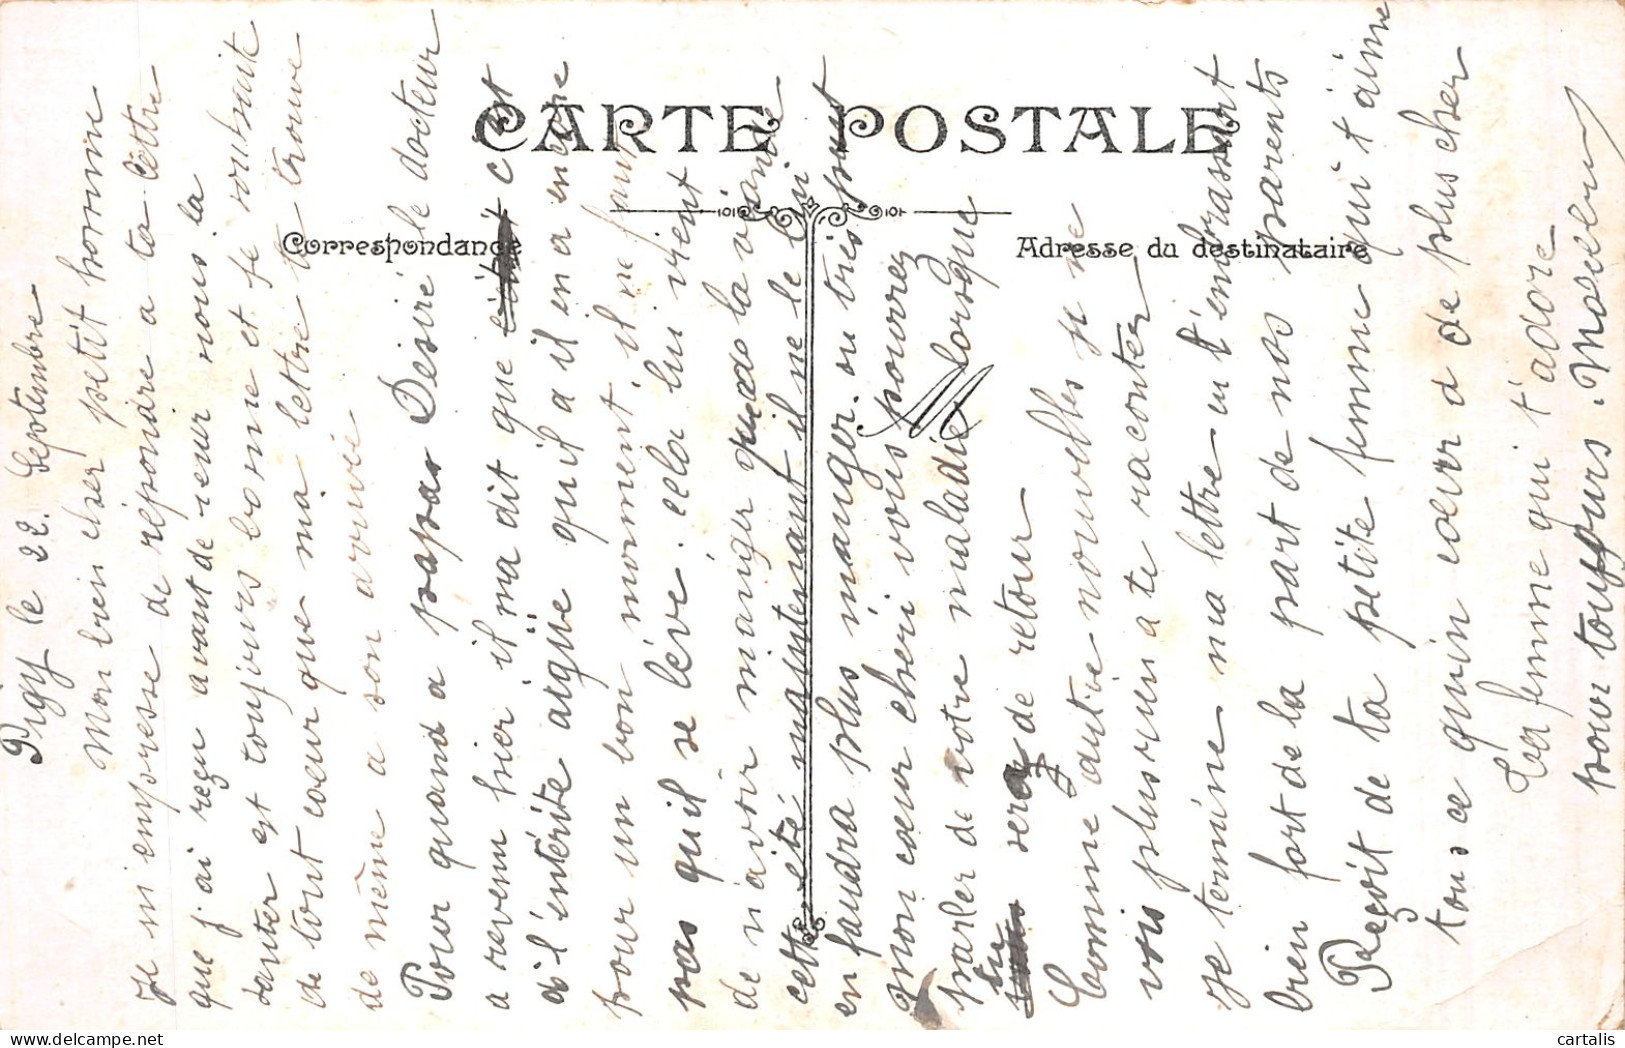 CARTE POSTALE
Correspondance
Adresse du destinataire
Pigy le 22 Septembre
Mon bien cher petit homme
Je m'empresse de répondre a ta lêttre
que j'ai reçu avant deneur nous la
santer est toujours bonne et je souhaite
de tout coeur que ma lettre te trouve
de même a son arrivée
Pour quand a papa Desiré le docteur
a revenu hier il ma dit que c'est
à l'intérite aigüe qu'il a il en a encore
pour un bon moment, il ne faut
pas qu'il se lève. cela lui vient
de n'avoir manger que de la viande
cette été maintenant il ne le
en faudra plus manger. ou très peut
mon cœur cheri vous pourrez
parler de votre maladie lorsque
tu sera de retour
Comme autre nouvelles je ne
vois plus rien a te raconter
je termine ma lettre en t'embrassant
bien fort de la part de nos parents
Reçoit de ta petite femme qui t'aime
tous ce qu'un cœur a de plus cher
Ta femme qui t'adore
pour toujours.
cartalis